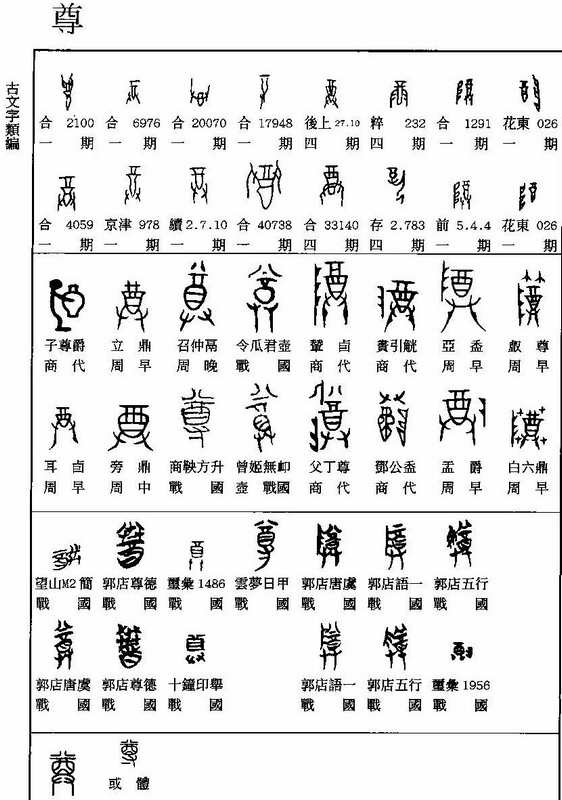 尊
古文字類編
合 2100 合 6976 合 20070 合 17948 後上 27.10 粹 232 合 1291 花東 026
一期 一期 一期 一期 四期 四期 一期 一期
合 4059 京津 978 續 2.7.10 合 40738 合 33140 存 2.783 前 5.4.4 花東 026
一期 一期 一期 一期 四期 四期 一期 一期
子尊爵 立鼎 召仲鬲 令瓜君壺 卣 引觥 亞盉 尊
商代 周早 周晚 戰國 商代 商代 周早 周早
耳卣 旁鼎 商鞅方升 曾姬無卹 父丁尊 鄧公盉 盂爵 白六鼎
周早 周中 戰國 壺戰國 商代 商代 周早 周早
望山M2簡 郭店尊德 璽彙 1486 雲夢日甲 郭店唐虞 郭店語一 郭店五行
戰國 戰國 戰國 戰國 戰國 戰國 戰國
郭店唐虞 郭店尊德 十鐘印舉 郭店語一 郭店五行 璽彙 1956
戰國 戰國 戰國 戰國 戰國 戰國
或體